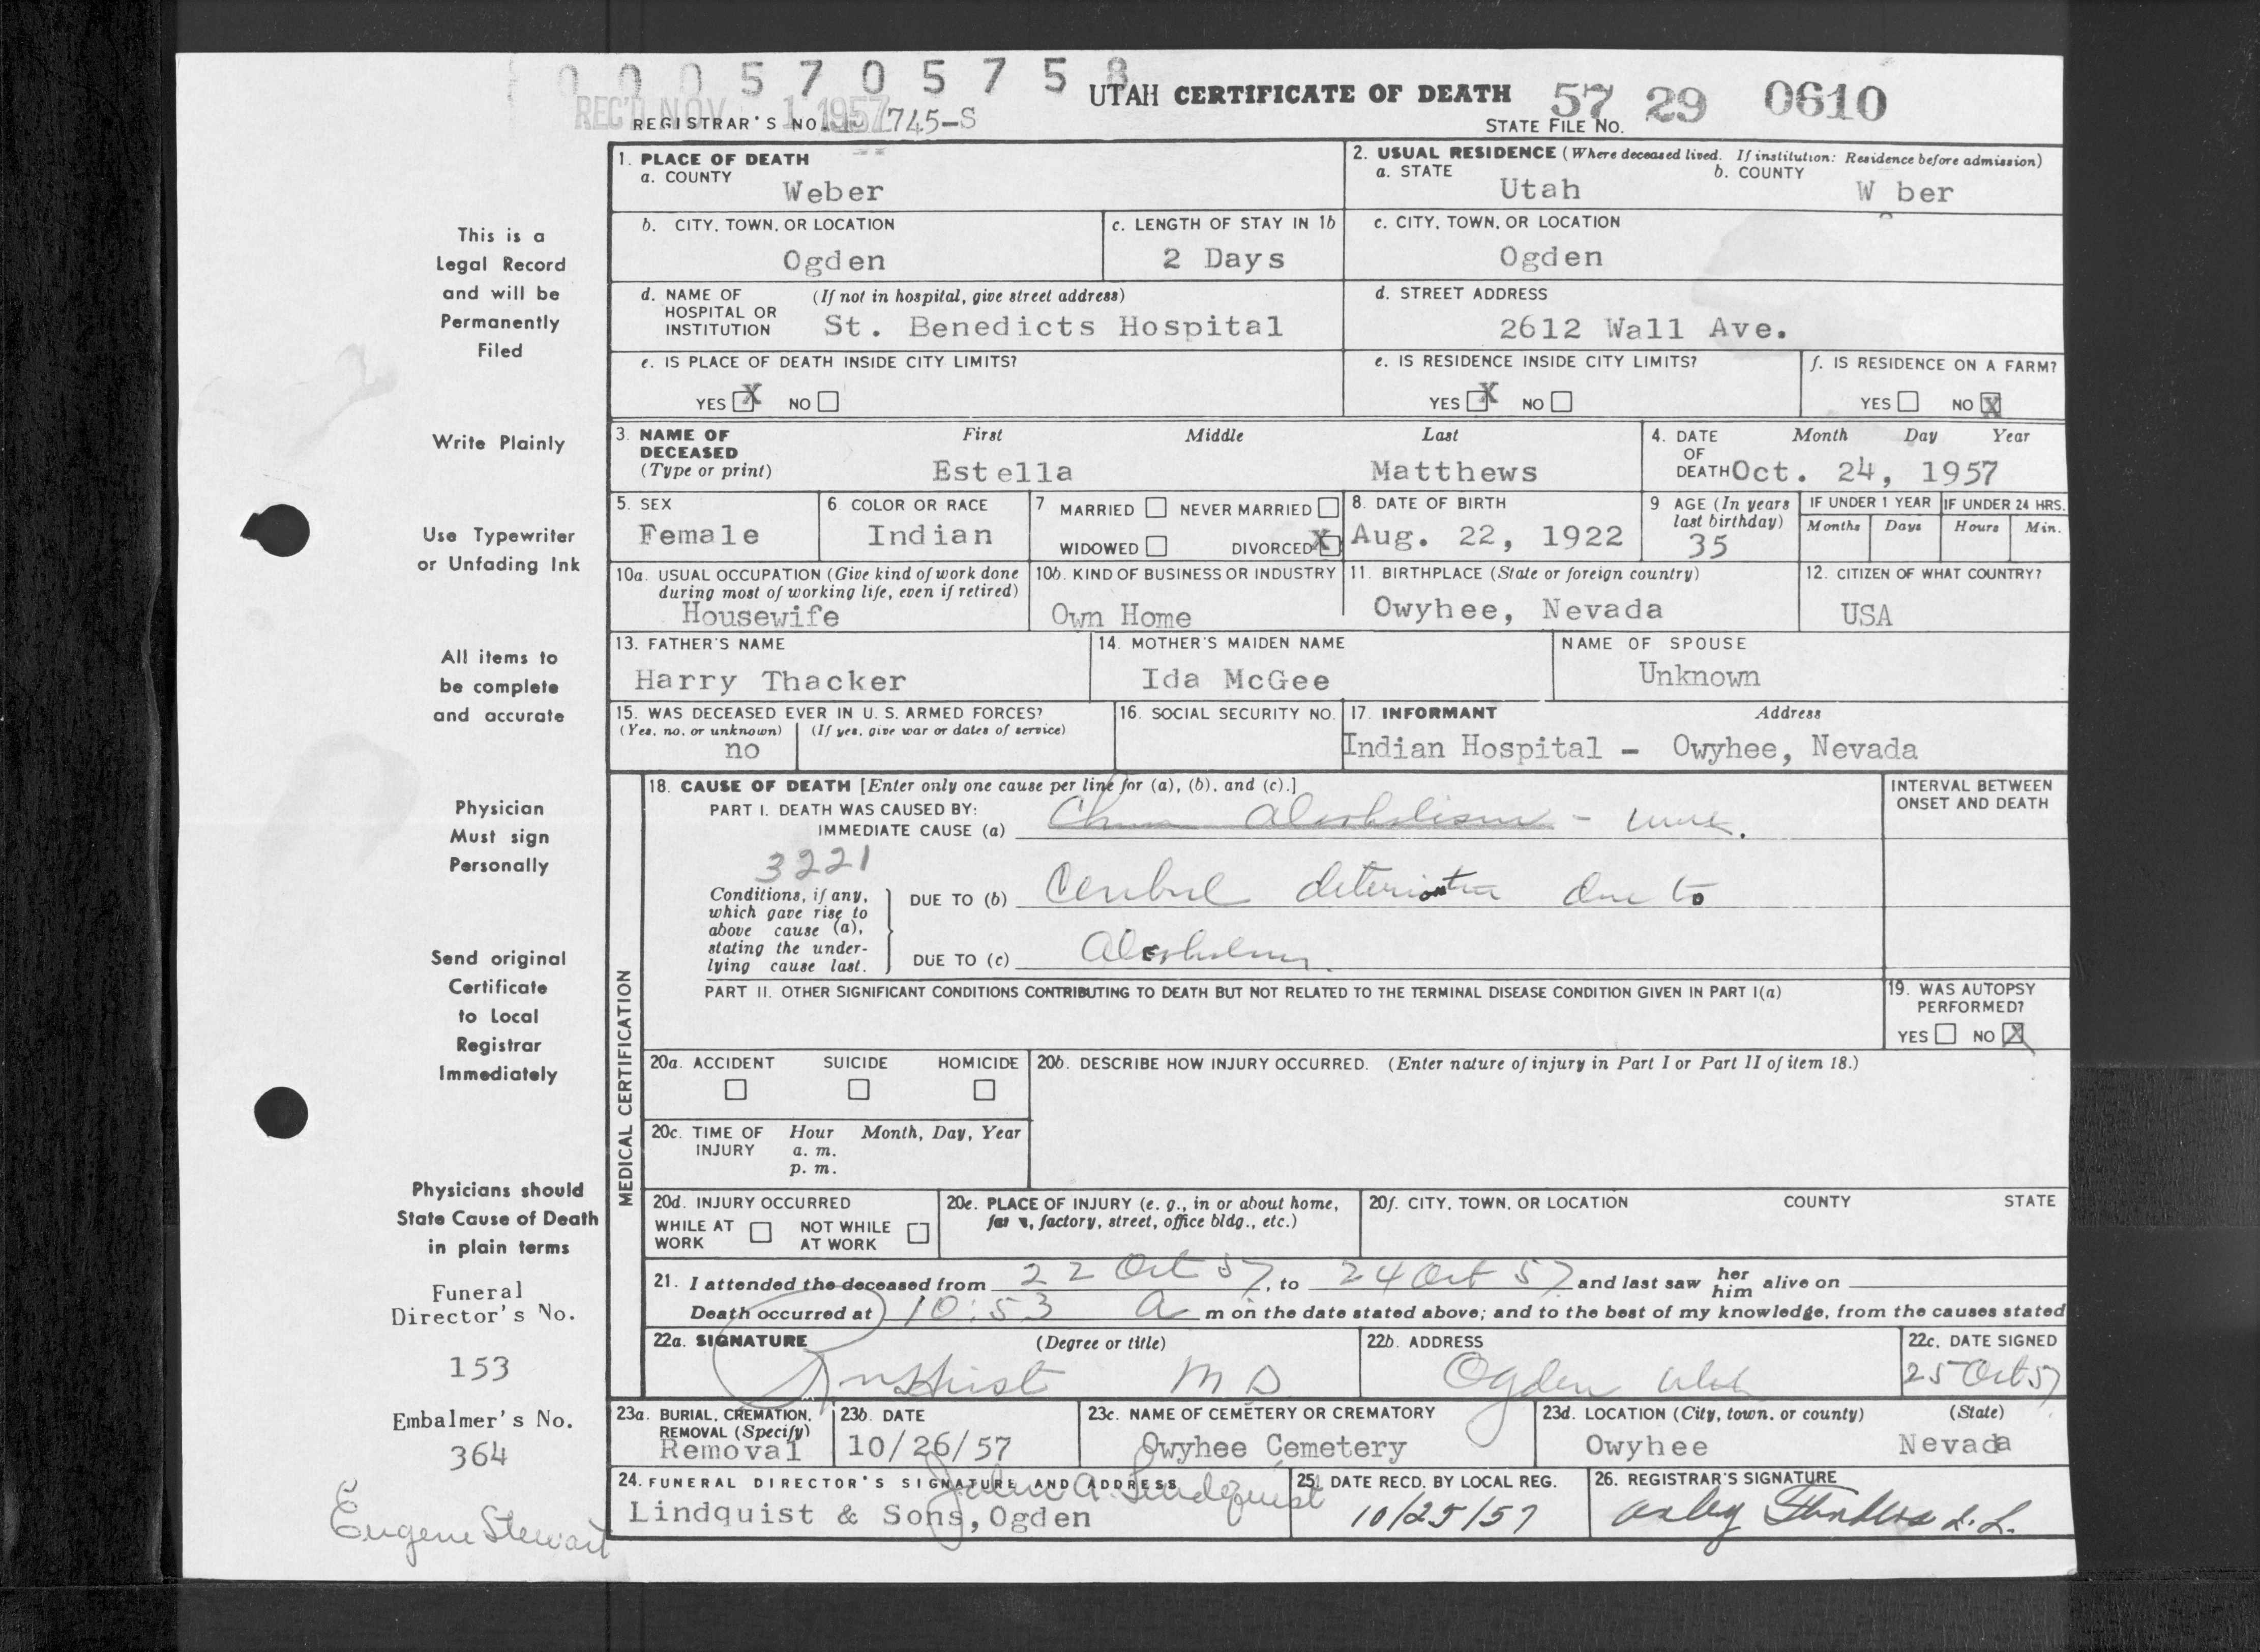 0 0 0 5 7 0 5 7 5 8
UTAH CERTIFICATE OF DEATH
57 29 0610
REC'D NOV 1 1957
REGISTRAR'S NO. 745-S
STATE FILE NO.
1. PLACE OF DEATH
a. COUNTY
Weber
2. USUAL RESIDENCE (Where deceased lived. If institution: Residence before admission)
a. STATE
Utah
b. COUNTY
W ber
b. CITY, TOWN, OR LOCATION
Ogden
c. LENGTH OF STAY IN 1b
2 Days
c. CITY, TOWN, OR LOCATION
Ogden
d. NAME OF HOSPITAL OR INSTITUTION
(If not in hospital, give street address)
St. Benedicts Hospital
d. STREET ADDRESS
2612 Wall Ave.
e. IS PLACE OF DEATH INSIDE CITY LIMITS?
YES X NO
e. IS RESIDENCE INSIDE CITY LIMITS?
YES X NO
f. IS RESIDENCE ON A FARM?
YES NO X
3. NAME OF DECEASED (Type or print)
First Middle Last
Estella Matthews
4. DATE OF DEATH
Month Day Year
Oct. 24, 1957
5. SEX
Female
6 COLOR OR RACE
Indian
7 MARRIED NEVER MARRIED
WIDOWED DIVORCED X
8. DATE OF BIRTH
Aug. 22, 1922
9 AGE (In years last birthday)
35
IF UNDER 1 YEAR
Months Days
IF UNDER 24 HRS.
Hours Min.
10a. USUAL OCCUPATION (Give kind of work done during most of working life, even if retired)
Housewife
10b. KIND OF BUSINESS OR INDUSTRY
Own Home
11. BIRTHPLACE (State or foreign country)
Owyhee, Nevada
12. CITIZEN OF WHAT COUNTRY?
USA
13. FATHER'S NAME
Harry Thacker
14. MOTHER'S MAIDEN NAME
Ida McGee
NAME OF SPOUSE
Unknown
15. WAS DECEASED EVER IN U. S. ARMED FORCES?
(Yes, no, or unknown) (If yes, give war or dates of service)
no
16. SOCIAL SECURITY NO.
17. INFORMANT Address
Indian Hospital - Owyhee, Nevada
MEDICAL CERTIFICATION
18. CAUSE OF DEATH [Enter only one cause per line for (a), (b), and (c).]
PART I. DEATH WAS CAUSED BY:
IMMEDIATE CAUSE (a) Alcoholism -
INTERVAL BETWEEN ONSET AND DEATH
3221
Conditions, if any, which gave rise to above cause (a), stating the underlying cause last.
DUE TO (b) Cerebral deterioration due to
DUE TO (c) Alcoholism
PART II. OTHER SIGNIFICANT CONDITIONS CONTRIBUTING TO DEATH BUT NOT RELATED TO THE TERMINAL DISEASE CONDITION GIVEN IN PART I(a)
19. WAS AUTOPSY PERFORMED?
YES NO X
20a. ACCIDENT SUICIDE HOMICIDE
20b. DESCRIBE HOW INJURY OCCURRED. (Enter nature of injury in Part I or Part II of item 18.)
20c. TIME OF INJURY
Hour Month, Day, Year
a. m.
p. m.
20d. INJURY OCCURRED
WHILE AT WORK NOT WHILE AT WORK
20e. PLACE OF INJURY (e. g., in or about home, factory, street, office bldg., etc.)
20f. CITY, TOWN, OR LOCATION COUNTY STATE
21. I attended the deceased from 22 Oct 57, to 24 Oct 57 and last saw her him alive on
Death occurred at 10:53 a m on the date stated above; and to the best of my knowledge, from the causes stated
22a. SIGNATURE (Degree or title)
M D
22b. ADDRESS
Ogden Utah
22c. DATE SIGNED
25 Oct 57
23a. BURIAL, CREMATION, REMOVAL (Specify)
Removal
23b. DATE
10/26/57
23c. NAME OF CEMETERY OR CREMATORY
Owyhee Cemetery
23d. LOCATION (City, town, or county) (State)
Owyhee Nevada
24. FUNERAL DIRECTOR'S SIGNATURE AND ADDRESS
John A. Lindquist
Lindquist & Sons, Ogden
25. DATE RECD. BY LOCAL REG.
10/25/57
26. REGISTRAR'S SIGNATURE
This is a
Legal Record
and will be
Permanently
Filed
Write Plainly
Use Typewriter
or Unfading Ink
All items to
be complete
and accurate
Physician
Must sign
Personally
Send original
Certificate
to Local
Registrar
Immediately
Physicians should
State Cause of Death
in plain terms
Funeral
Director's No.
153
Embalmer's No.
364
Eugene Stewart